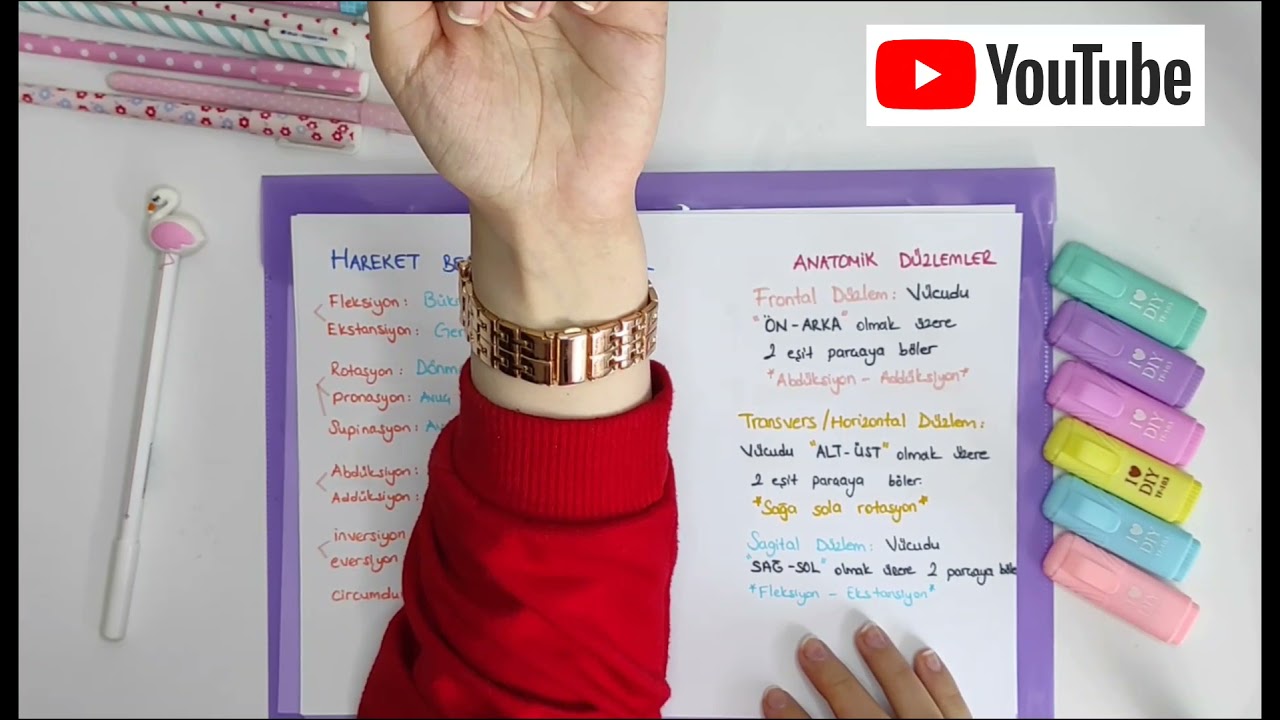 YouTube
HAREKET
ANATOMİK DÜZLEMLER
Fleksiyon:
Ekstansiyon:
Rotasyon: Dönm
pronasyon: Avuç
Supinasyon:
Abdüksiyon:
Addüksiyon:
inversiyon
eversiyon
Frontal Düzlem: Vücudu
"ÖN-ARKA" olmak üzere
2 eşit parçaya böler
*Abdüksiyon - Addüksiyon*
Transvers/Horizontal Düzlem:
Vücudu "ALT-ÜST" olmak üzere
2 eşit parçaya böler.
*Sağa sola rotasyon*
Sagital Düzlem: Vücudu
"SAĞ-SOL" olmak üzere 2 parçaya böle
*Fleksiyon - Ekstansiyon*
I ♥ DIY
I ♥ DIY
I ♥ DIY
I ♥ DIY
I ♥ DIY
I ♥ DIY